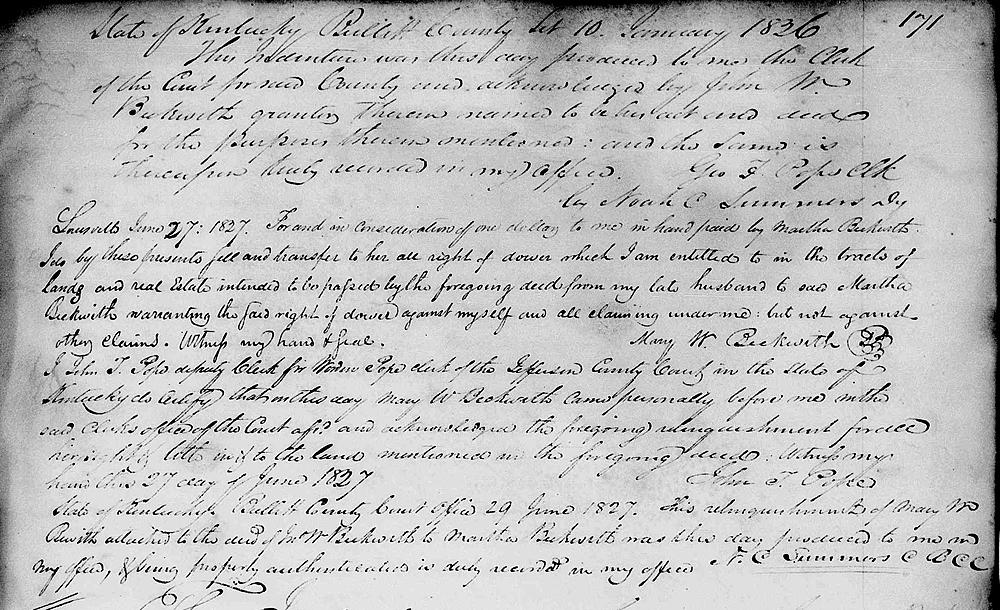 171
State of Kentucky Bullitt County Sct 10. January 1826
This Indenture was this day produced to me the Clerk
of the Court for said County and acknowledged by John W.
Beckwith grantor therein named to be his act and deed
for the purposes therein mentioned: and the same is
thereupon duly recorded in my office. Geo F. Pope Clk
by Noah C Summers Dy
Louisville June 27: 1827. For and in consideration of one dollar to me in hand paid by Martha Beckwith
I do by these presents sell and transfer to her all right of dower which I am entitled to in the tracts of
Lands and real Estate intended to be passed by the foregoing deed from my late husband to said Martha
Beckwith warranting the said right of dower against myself and all claiming under me: but not against
other claims. Witness my hand & seal. Mary W Beckwith
I John T. Pope deputy Clerk for Worden Pope clerk of the Jefferson County Court in the State of
Kentucky do certify that on this day Mary W Beckwith came personally before me in the
said Clerks office of the Court afsd and acknowledged the foregoing relinquishment for all
her right & title in & to the land mentioned in the foregoing deed: Witness my
hand this 27 day of June 1827 John T. Pope
State of Kentucky Bullitt County Court Office 29 June 1827. This relinquishment of Mary W
Bewith attached to the deed of Jno W Beckwith to Martha Beckwith was this day produced to me in
my office, & being properly authenticated is duly recorded in my office N. C Summers C B C C